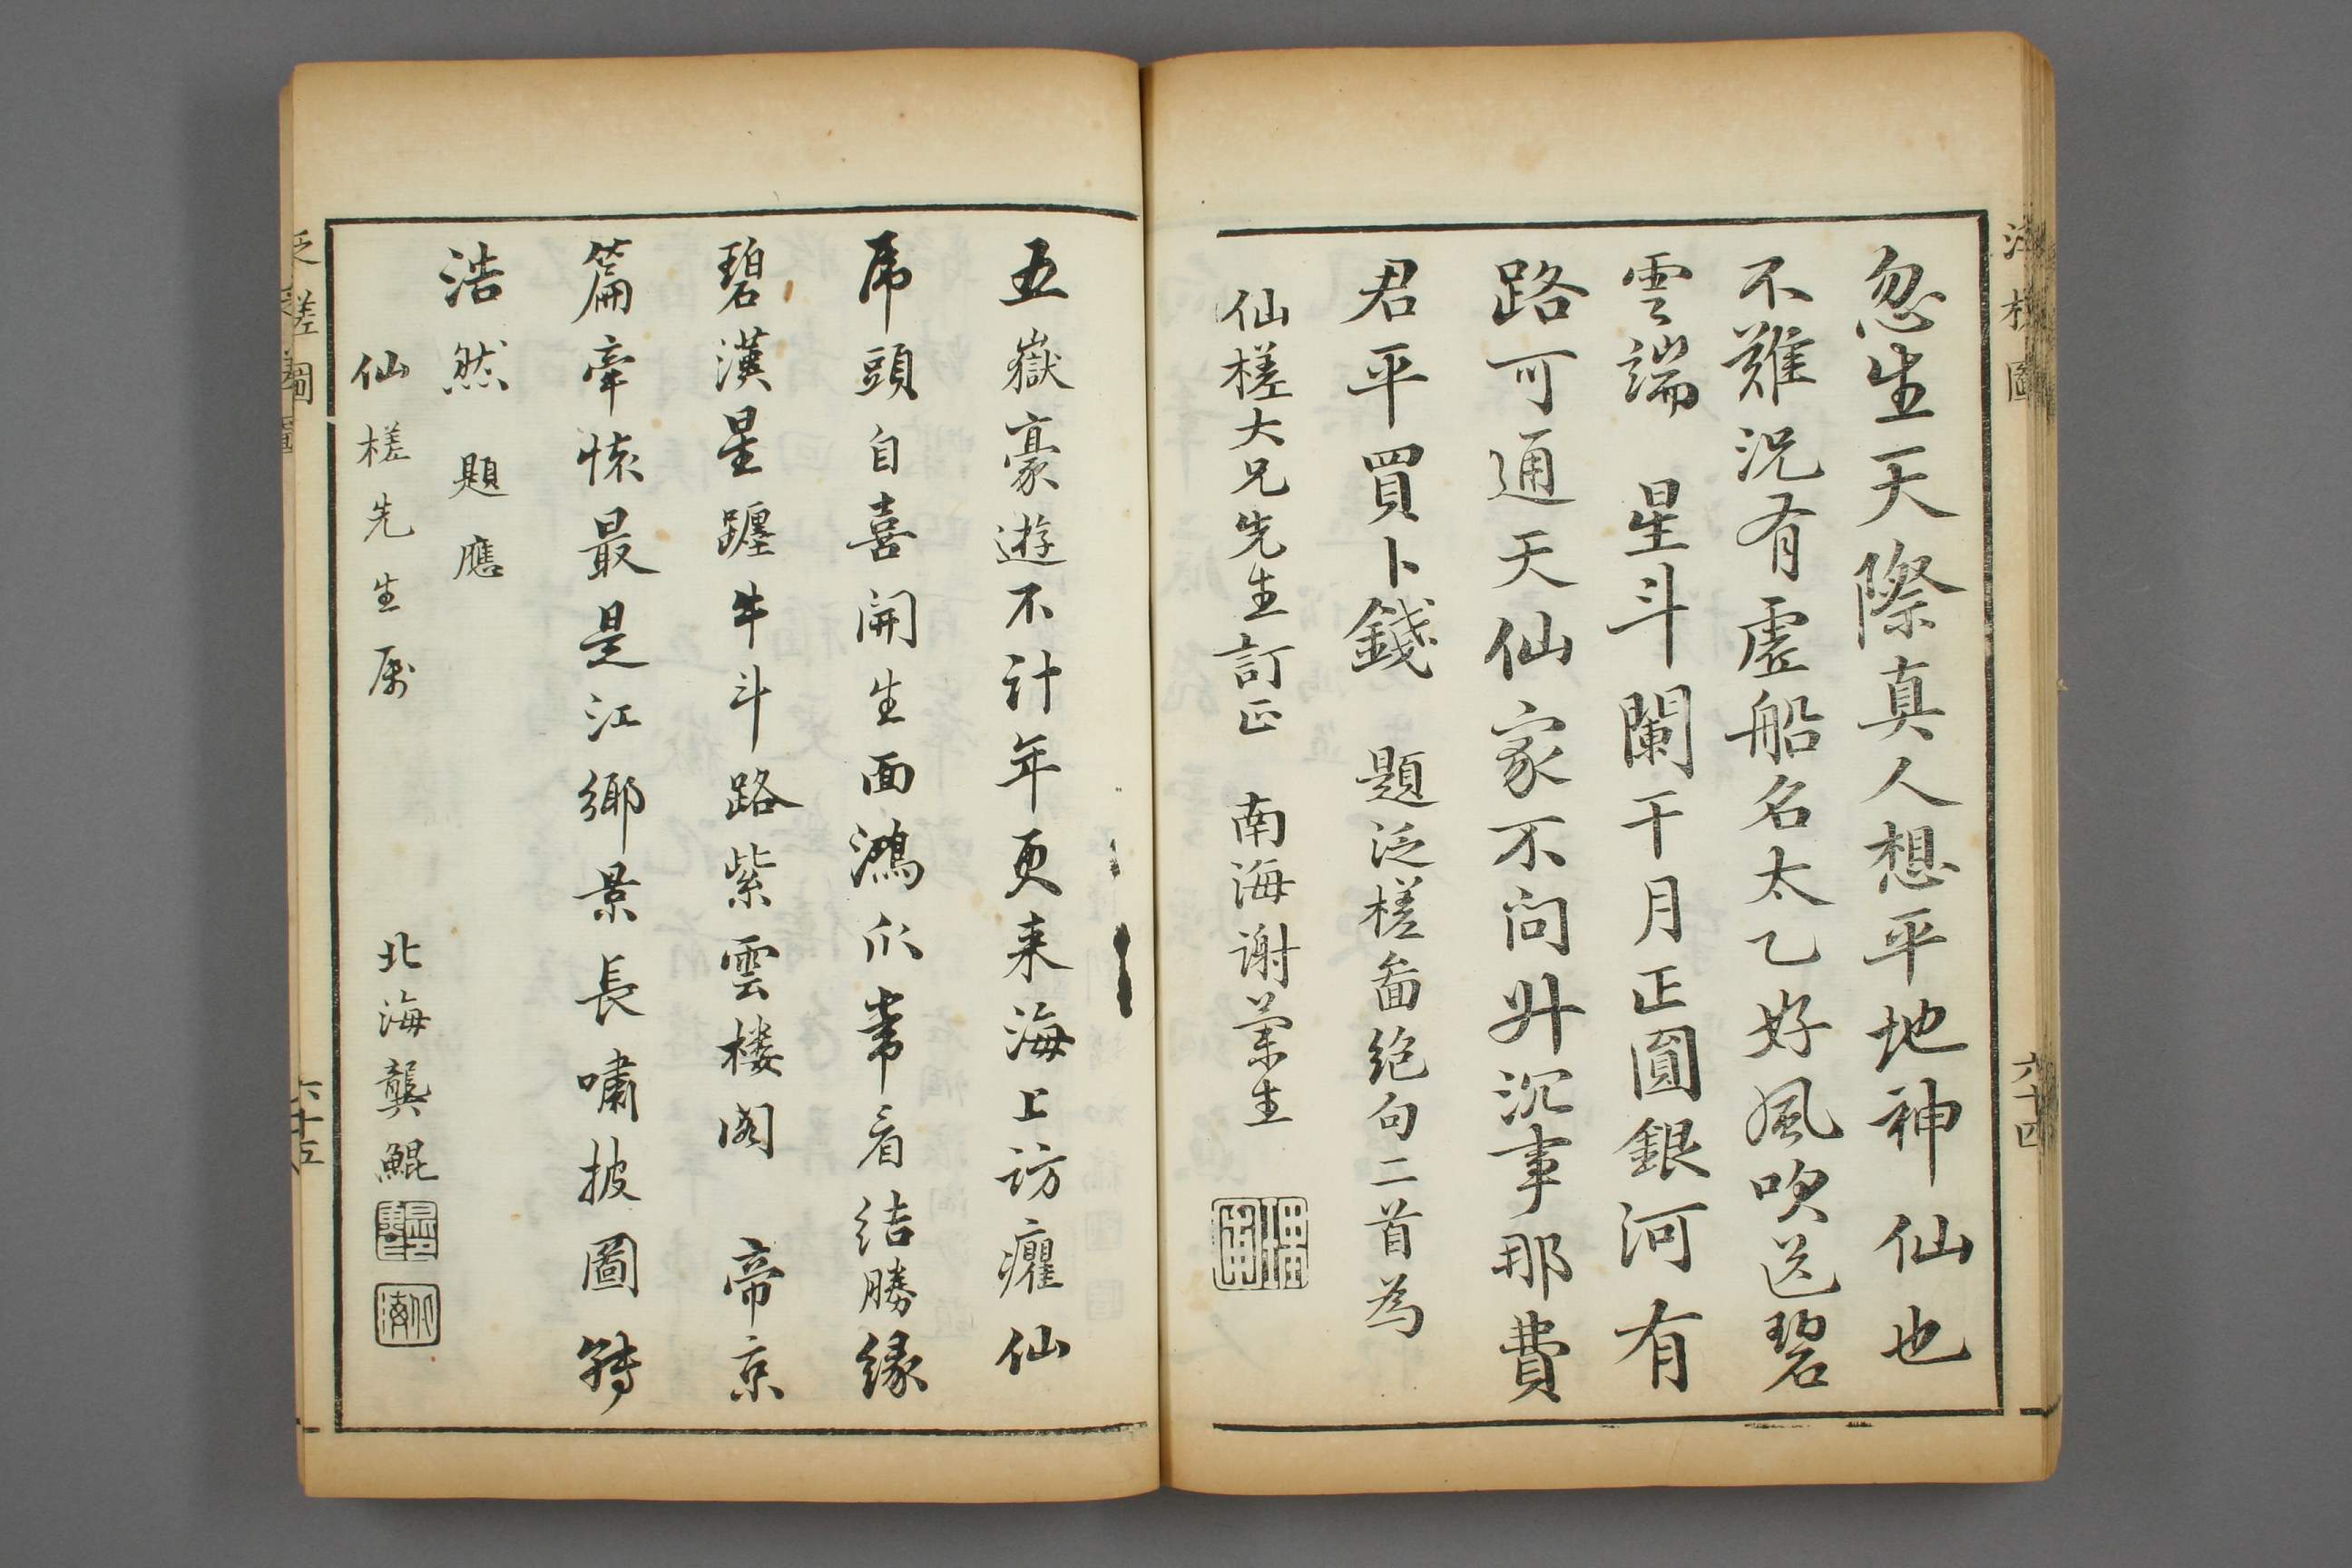 忽生天際真人想平地神仙也
不難況有虛船名太乙好風吹送碧
雲端　星斗闌干月正圓銀河有
路可通天仙家不問升沉事那費
君平買卜錢　題泛槎圖絶句二首為
仙槎大兄先生訂正　南海謝蘭生
五嶽豪遊不計年更来海上訪癯仙
虎頭自喜開生面鴻爪常看結勝緣
碧漢星躔牛斗路紫雲樓閣　帝京
篇牽懷最是江鄉景長嘯披圖轉
浩然　題應
仙槎先生属
北海龔鯤
六十四
六十五